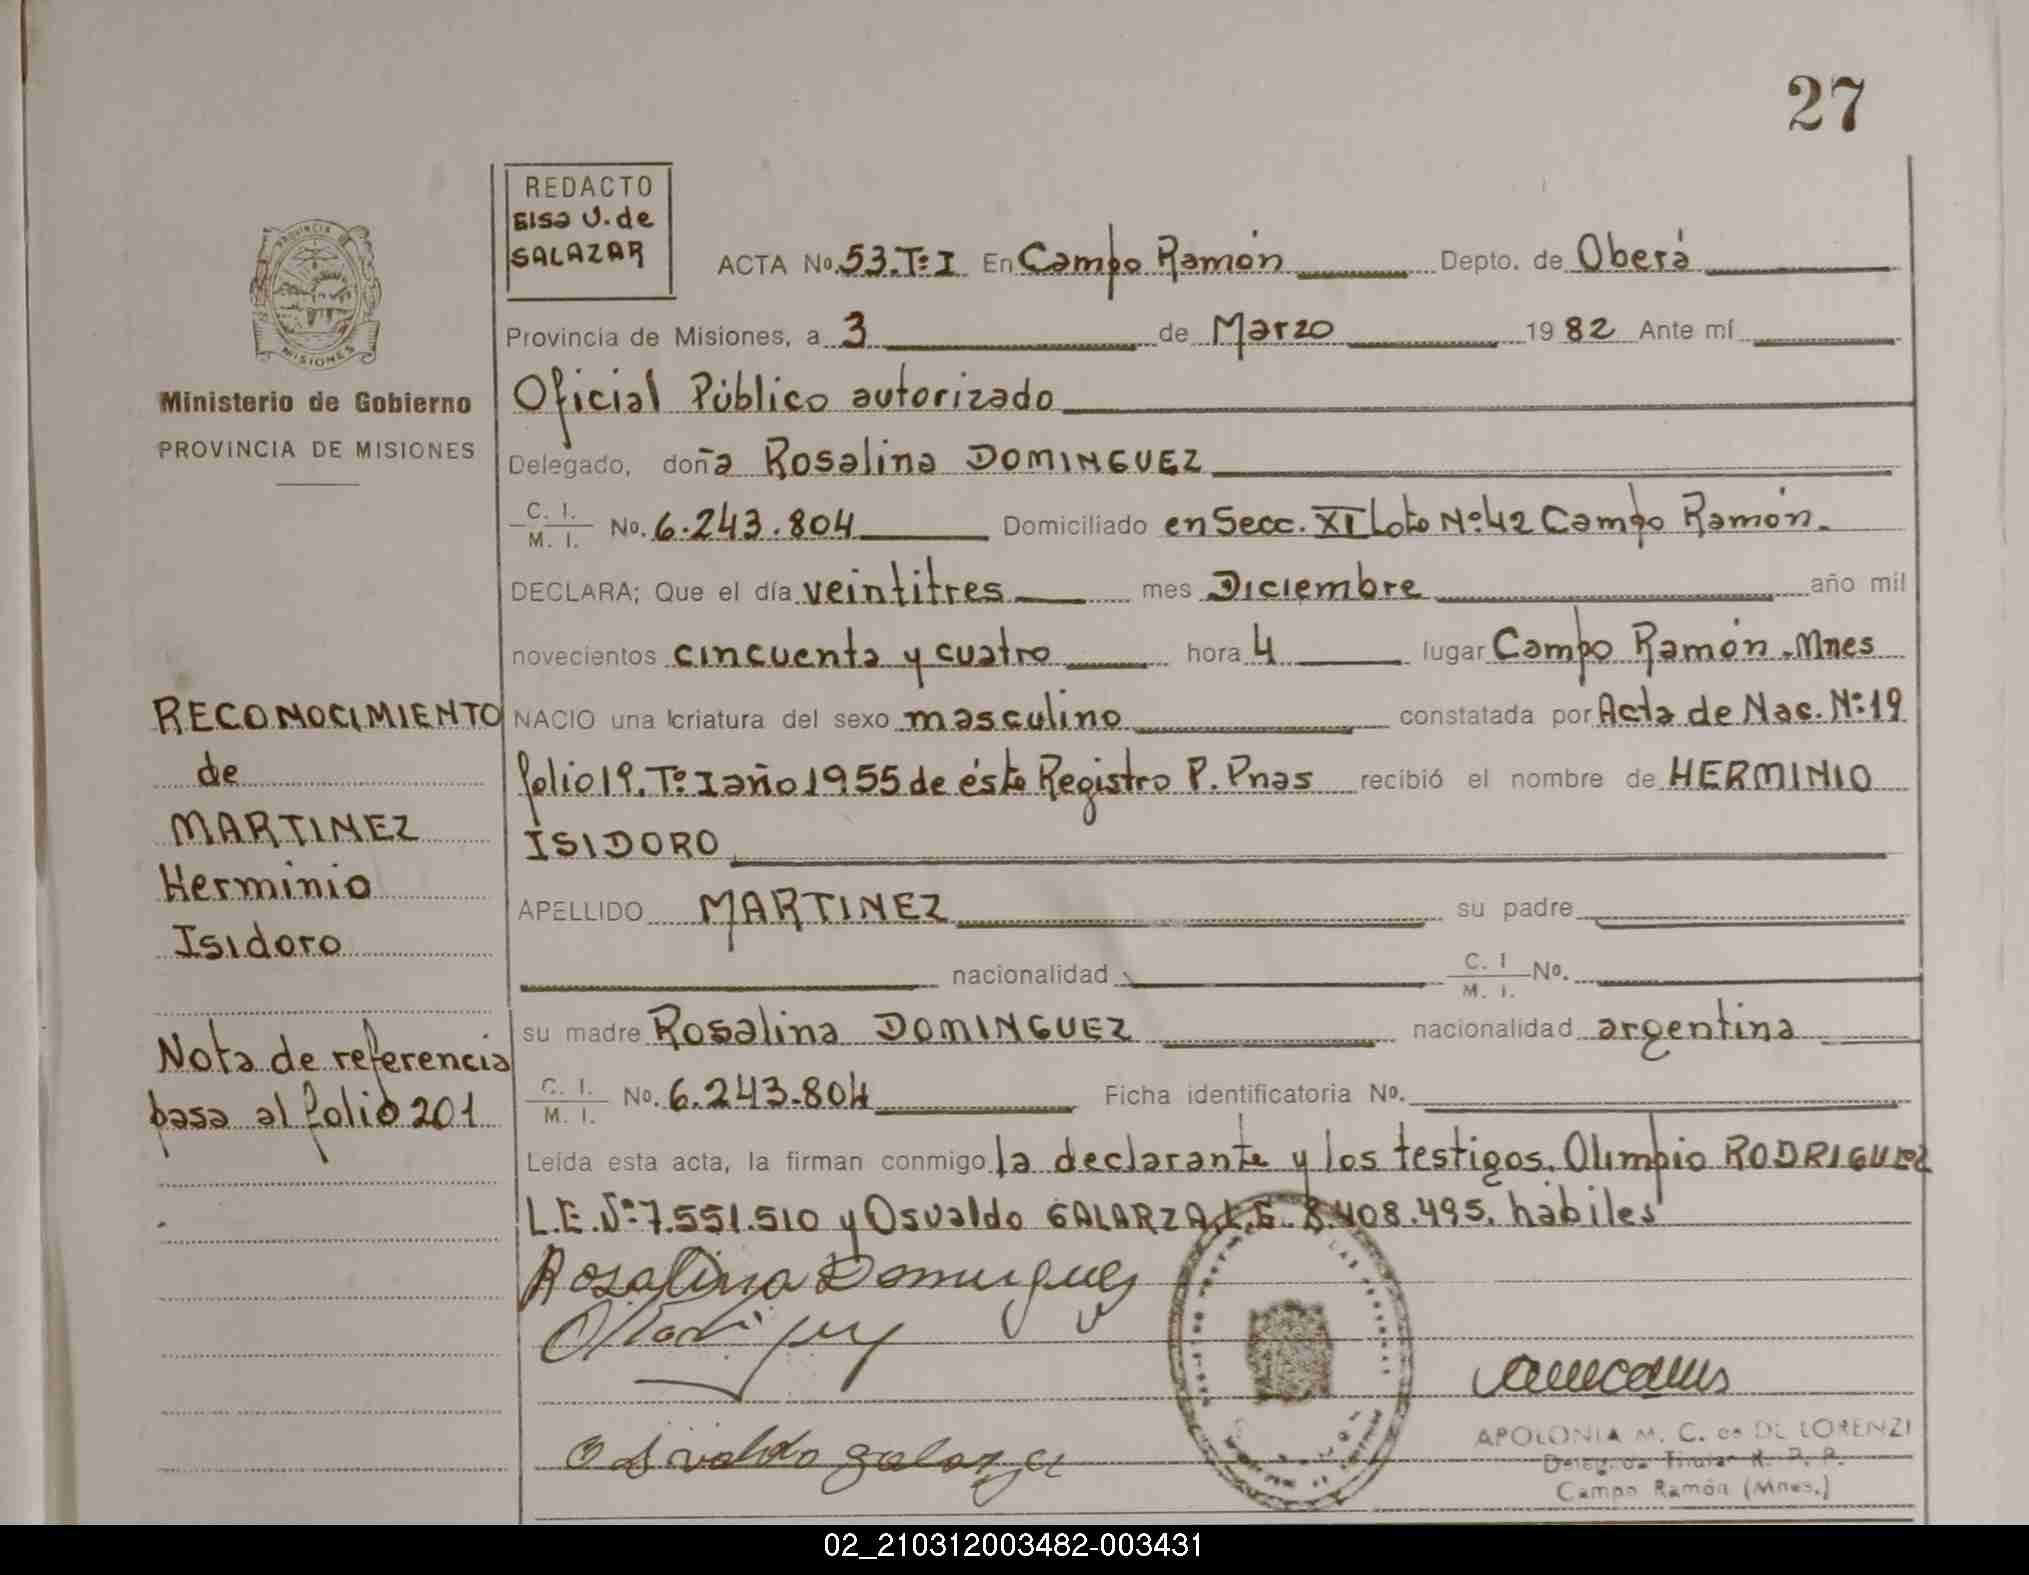 27
REDACTO
Elsa V. de
SALAZAR
ACTA No. 53. Tº I En Campo Ramón Depto. de Oberá
Provincia de Misiones, a 3 de Marzo 1982 Ante mí
Oficial Público autorizado
Delegado, doña Rosalina DOMINGUEZ
C. I.
M. I. No. 6.243.804 Domiciliado en Secc. XI Loto Nº 42 Campo Ramón.
DECLARA; Que el día veintitres mes Diciembre año mil
novecientos cincuenta y cuatro hora 4 lugar Campo Ramón. Mnes
NACIO una criatura del sexo masculino constatada por Acta de Nac. Nº 19
folio 19. Tº I año 1955 de éste Registro P. Pnas recibió el nombre de HERMINIO
ISIDORO
APELLIDO MARTINEZ su padre
nacionalidad C. I
M. I. No.
su madre Rosalina DOMINGUEZ nacionalidad argentina
C. I.
M. I. No. 6.243.804 Ficha identificatoria No.
Leída esta acta, la firman conmigo la declarante y los testigos. Olimpio RODRIGUEZ
L.E. Nº 7.551.510 y Osvaldo GALARZA L.E. 8.408.495. hábiles
Rosalina Dominguez
ORodriguez
Osvaldo galarza
APOLONIA M. C. de DE LORENZI
Delegada Titular R. P. P.
Campo Ramón (Mnes.)
PROVINCIA DE
MISIONES
Ministerio de Gobierno
PROVINCIA DE MISIONES
RECONOCIMIENTO
de
MARTINEZ
Herminio
Isidoro
Nota de referencia
pasa al folio 201
02_210312003482-003431